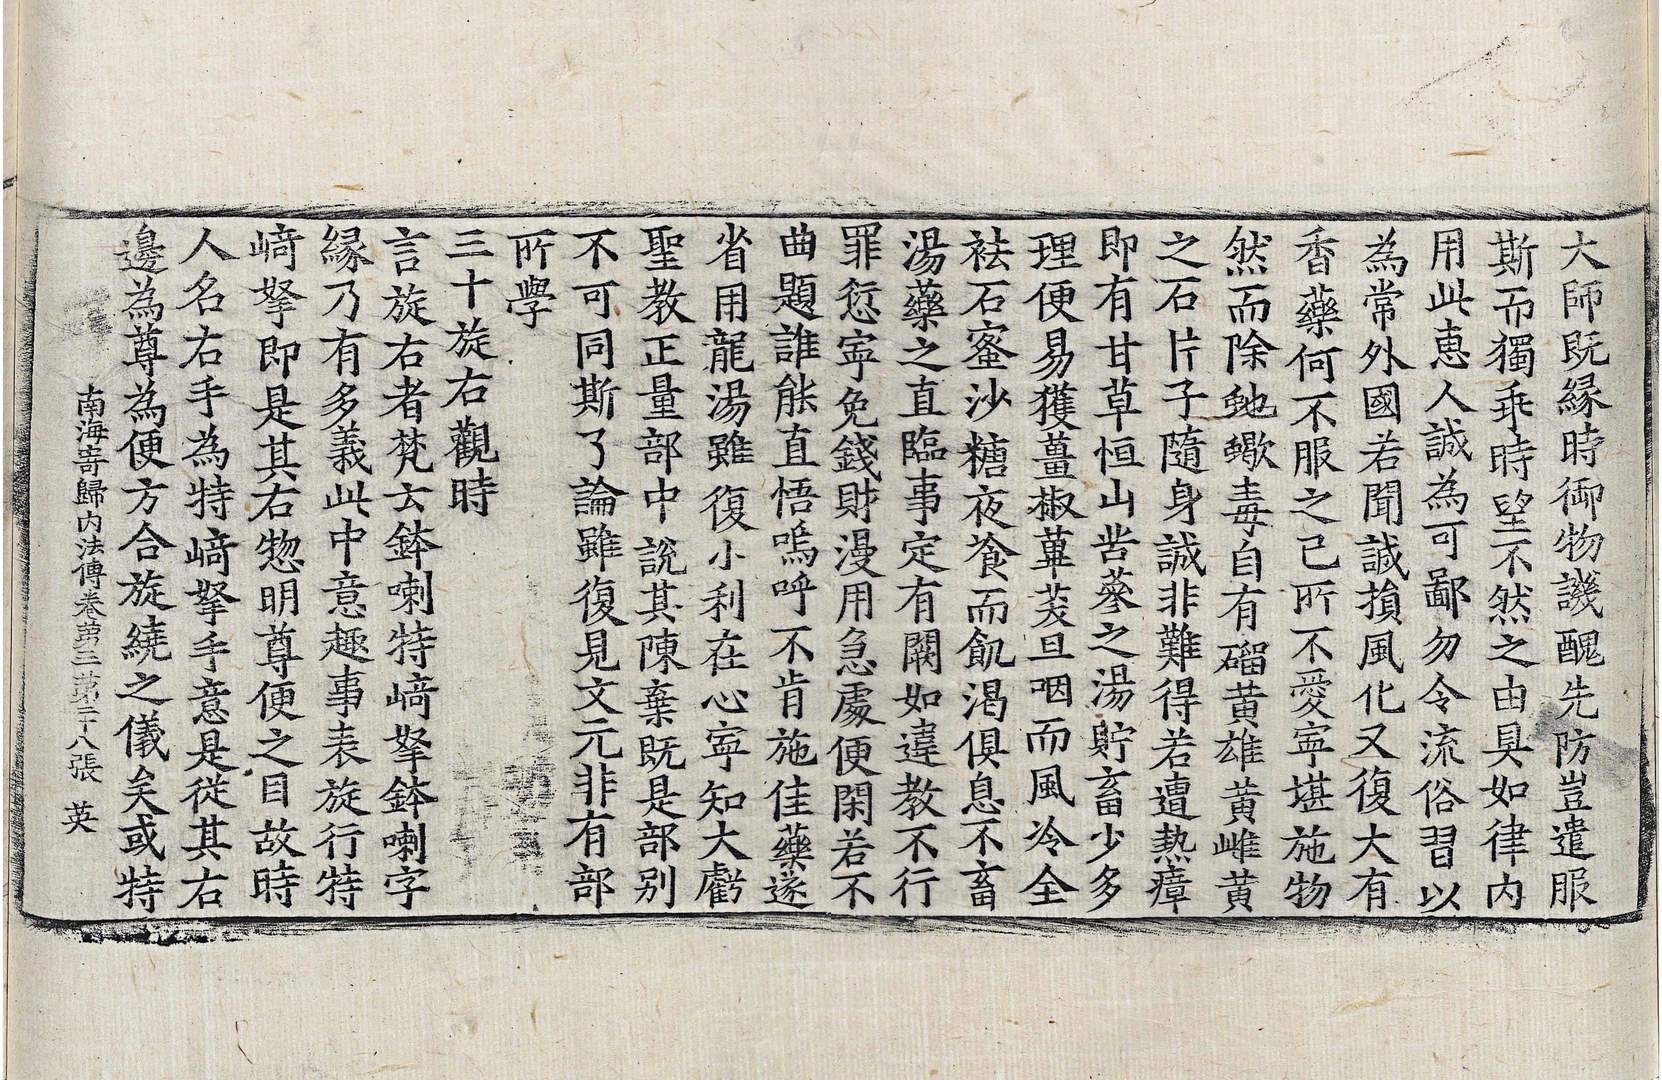 大師既縁時御物譏醜先防豈遣服
斯而獨乖時望不然之由具如律內
用此惠人誠為可鄙勿令流俗習以
為常外國若聞誠損風化又復大有
香藥何不服之己所不愛寧堪施物
然而除虵蠍毒自有磂黃雄黃雌黃
之石片子隨身誠非難得若遭熱瘴
即有甘草恒山苦蔘之湯貯畜少多
理便易獲薑椒蓽茇旦咽而風冷全
袪石蜜沙糖夜飡而飢渴俱息不畜
湯藥之直臨事定有闕如違教不行
罪愆寧免錢財漫用急處便閑若不
曲題誰能直悟嗚呼不肯施佳藥遂
省用龍湯雖復小利在心寧知大虧
聖教正量部中說其陳棄既是部別
不可同斯了論雖復見文元非有部
所學
三十旋右觀時
言旋右者梵云鉢喇特崎拏鉢喇字
縁乃有多義此中意趣事表旋行特
崎拏即是其右惣明尊便之目故時
人名右手為特崎拏手意是從其右
邊為尊為便方合旋繞之儀矣或特
南海寄歸內法傳卷第三 第二十八張 英